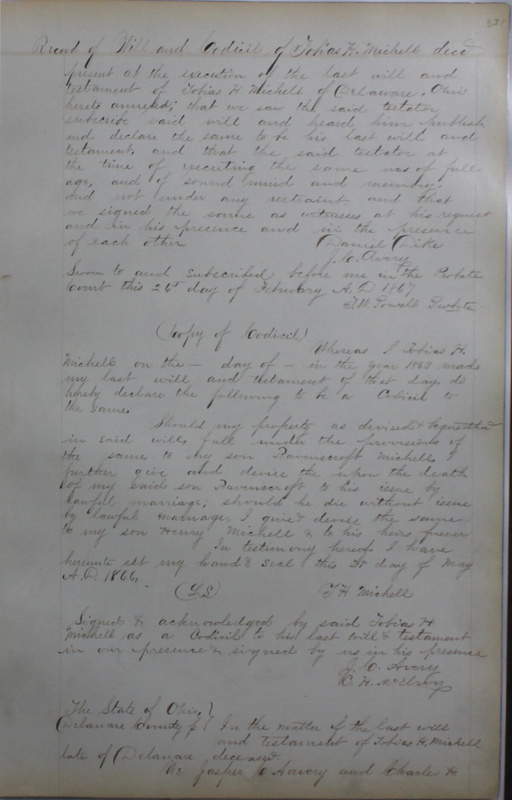 321
Record of Will and Codicil of Tobias H. Michell decd
present at the execution of the last will and
testament of Tobias H Michell of Delaware, Ohio
hereto annexed; that we saw the said testator
subscribe said will and heard him publish
and declare the same to be his last will and
testament, and that the said testator at
the time of executing the same was of full
age, and of sound mind and memory.
and not under any restraint, and that
we signed the same as witnesses at his request
and in his presence and in the presence
of each other. Daniel Dike
J. C. Avery
Sworn to and subscribed before me in the Probate
Court this 26th day of February A.D 1867
T.W. Powell
(Copy of Codicil)
Whereas I Tobias H.
Michell on the — day of — in the year 1863 made
my last will and testament of that day, do
hereby declare the following to be a Codicil to
the same.
Should my property as devised & bequeathed
in said will, fall under the provisions of
the same to my son Ravenscroft Michell, I
further give and devise the upon the death
of my said son Ravenscroft to his issue by
lawful marriage; should he die without issue
by lawful marriage, I give & devise the same
to my son Henry Michell & to his heirs forever
In testimony hereof I have
hereunto set my hand & seal this 28 day of May
A.D. 1866.
(LS) T H Michell
Signed & acknowledged by said Tobias H
Michell as a Codicil to his last will & testament
in our presence & signed by us in his presence
J. C. Avery
C. H. McElroy
The State of Ohio, }
Delaware County ss } In the matter of the last will
and testament of Tobias H. Michell
late of Delaware deceased.
We Jasper C Aavery and Charles H